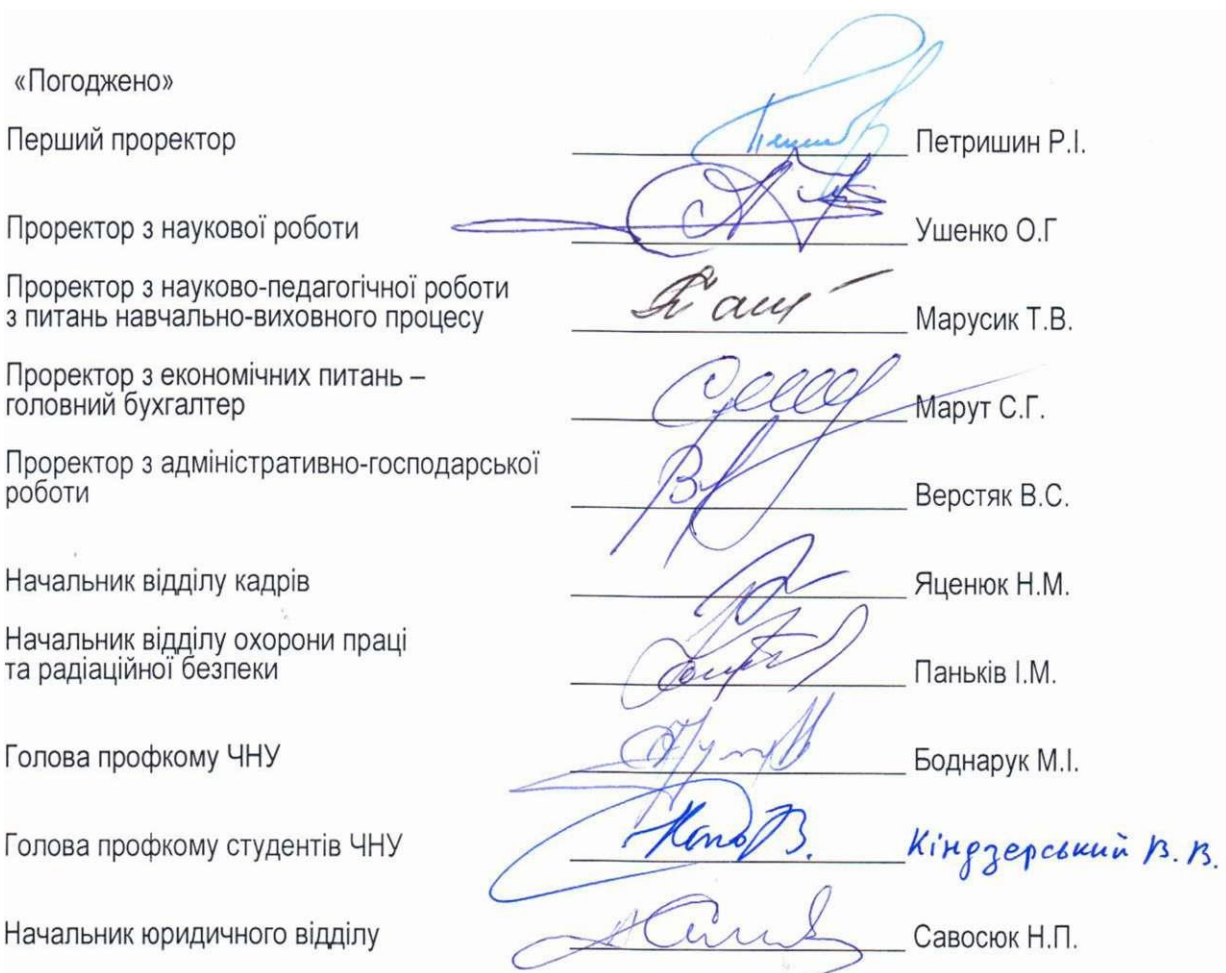 «Погоджено»
Перший проректор Петришин Р.І.
Проректор з наукової роботи Ушенко О.Г
Проректор з науково-педагогічної роботи
з питань навчально-виховного процесу Марусик Т.В.
Проректор з економічних питань –
головний бухгалтер Марут С.Г.
Проректор з адміністративно-господарської
роботи Верстяк В.С.
Начальник відділу кадрів Яценюк Н.М.
Начальник відділу охорони праці
та радіаційної безпеки Паньків І.М.
Голова профкому ЧНУ Боднарук М.І.
Голова профкому студентів ЧНУ Кіндзерський В.В.
Начальник юридичного відділу Савосюк Н.П.